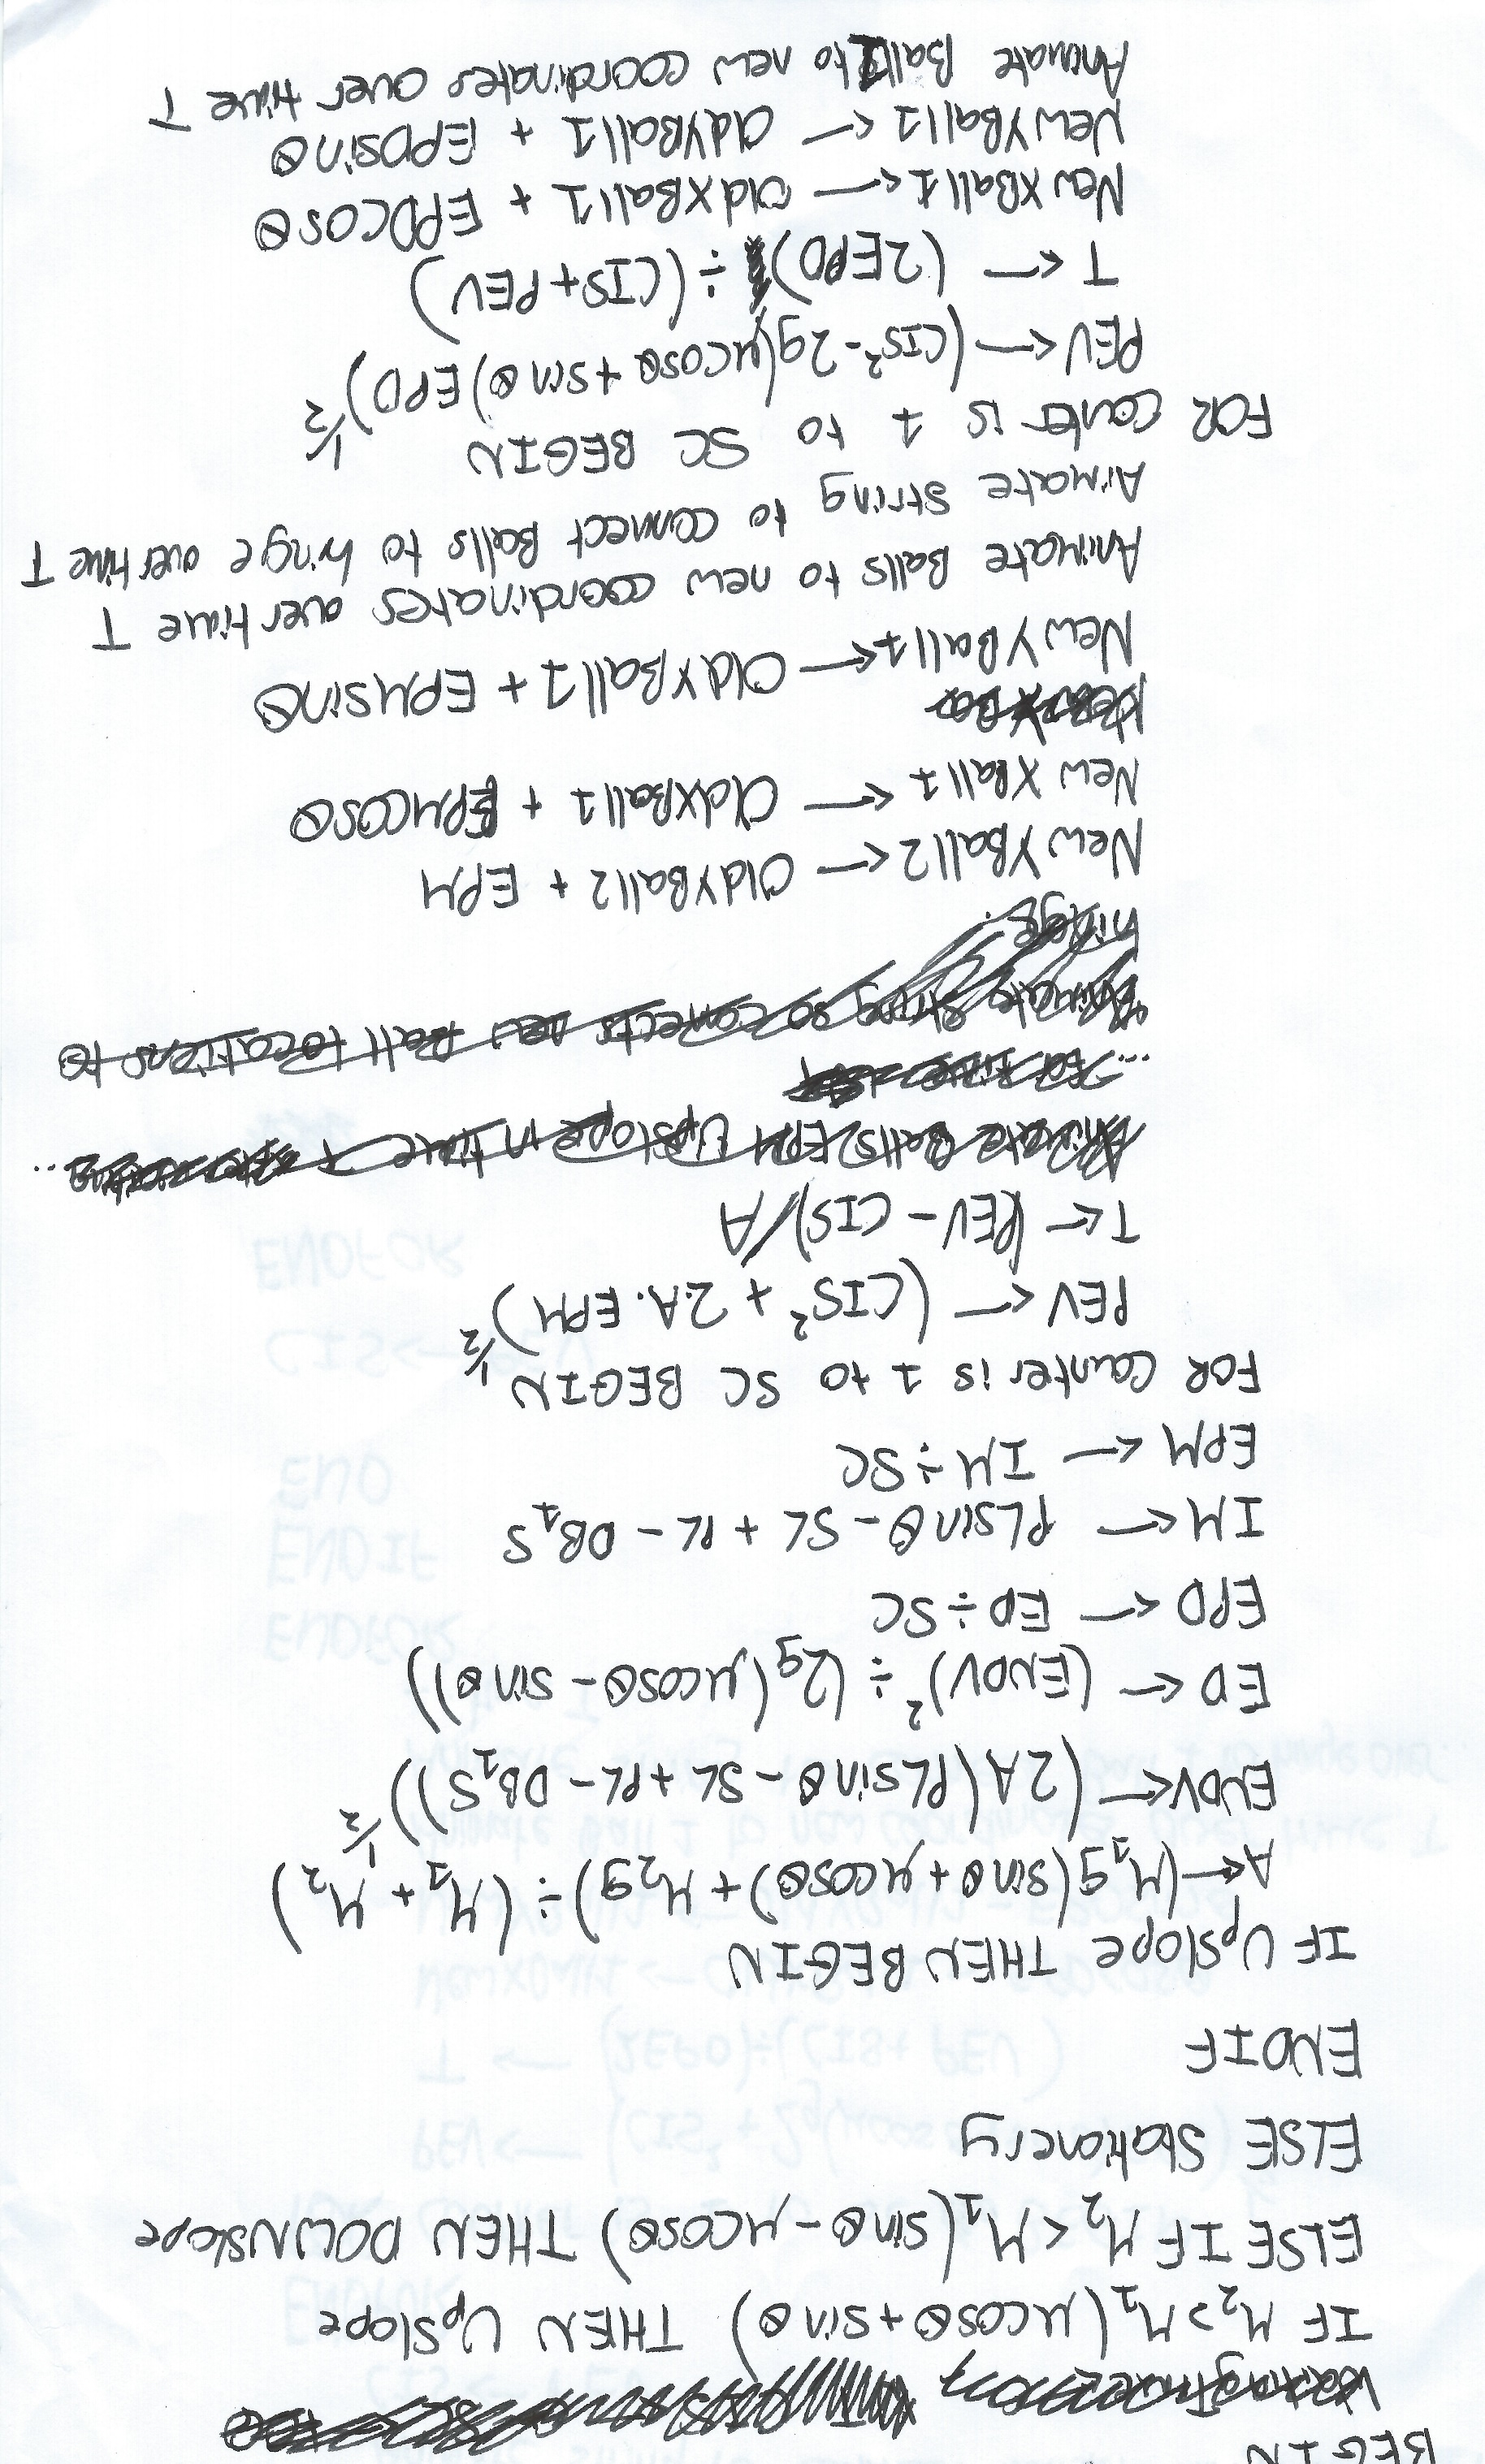 BEGIN
IF M₂>M₁(μcosθ+sinθ) THEN UpSlope
ELSE IF M₂<M₁(sinθ-μcosθ) THEN DOWNSlope
ELSE Stationery
ENDIF
IF UpSlope THEN BEGIN
A<—(M₁g(sinθ+μcosθ)+M₂g)÷(M₁+M₂)
ENDV<—(2A(PLsinθ-SL+PL-DB₁S))^½
ED<—(ENDV)²÷(2g(μcosθ-sinθ))
EPD<—ED÷SC
IM<—PLsinθ-SL+PL-DB₁S
EPM<—IM÷SC
FOR Counter is 1 to SC BEGIN
PEV<—(CIS²+2A.EPM)^½
T<—(PEV-CIS)/A
Animate Balls EPM UpSlope in time T
Animate string so conects new Ball locations to
hidge.
New YBall2<—OldYBall2+EPM
New XBall1<—OldXBall1+EPMcosθ
New YBall1<—OldYBall1+EPMsinθ
Animate Balls to new coordinates over time T
Aimate string to connect Balls to hinge over time T
FOR Counter is 1 to SC BEGIN
PEV<—(CIS²-2g(μcosθ+sinθ)EPD)^½
T<—(2EPD)÷(CIS+PEV)
New XBall1<—OldXBall1+EPDcosθ
New YBall1<—OldYBall1+EPDsinθ
Animate Ball1 to new coordinates over time T